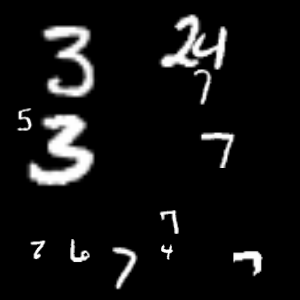 3 24
7
5
3 7
7
7 6 7 4 7